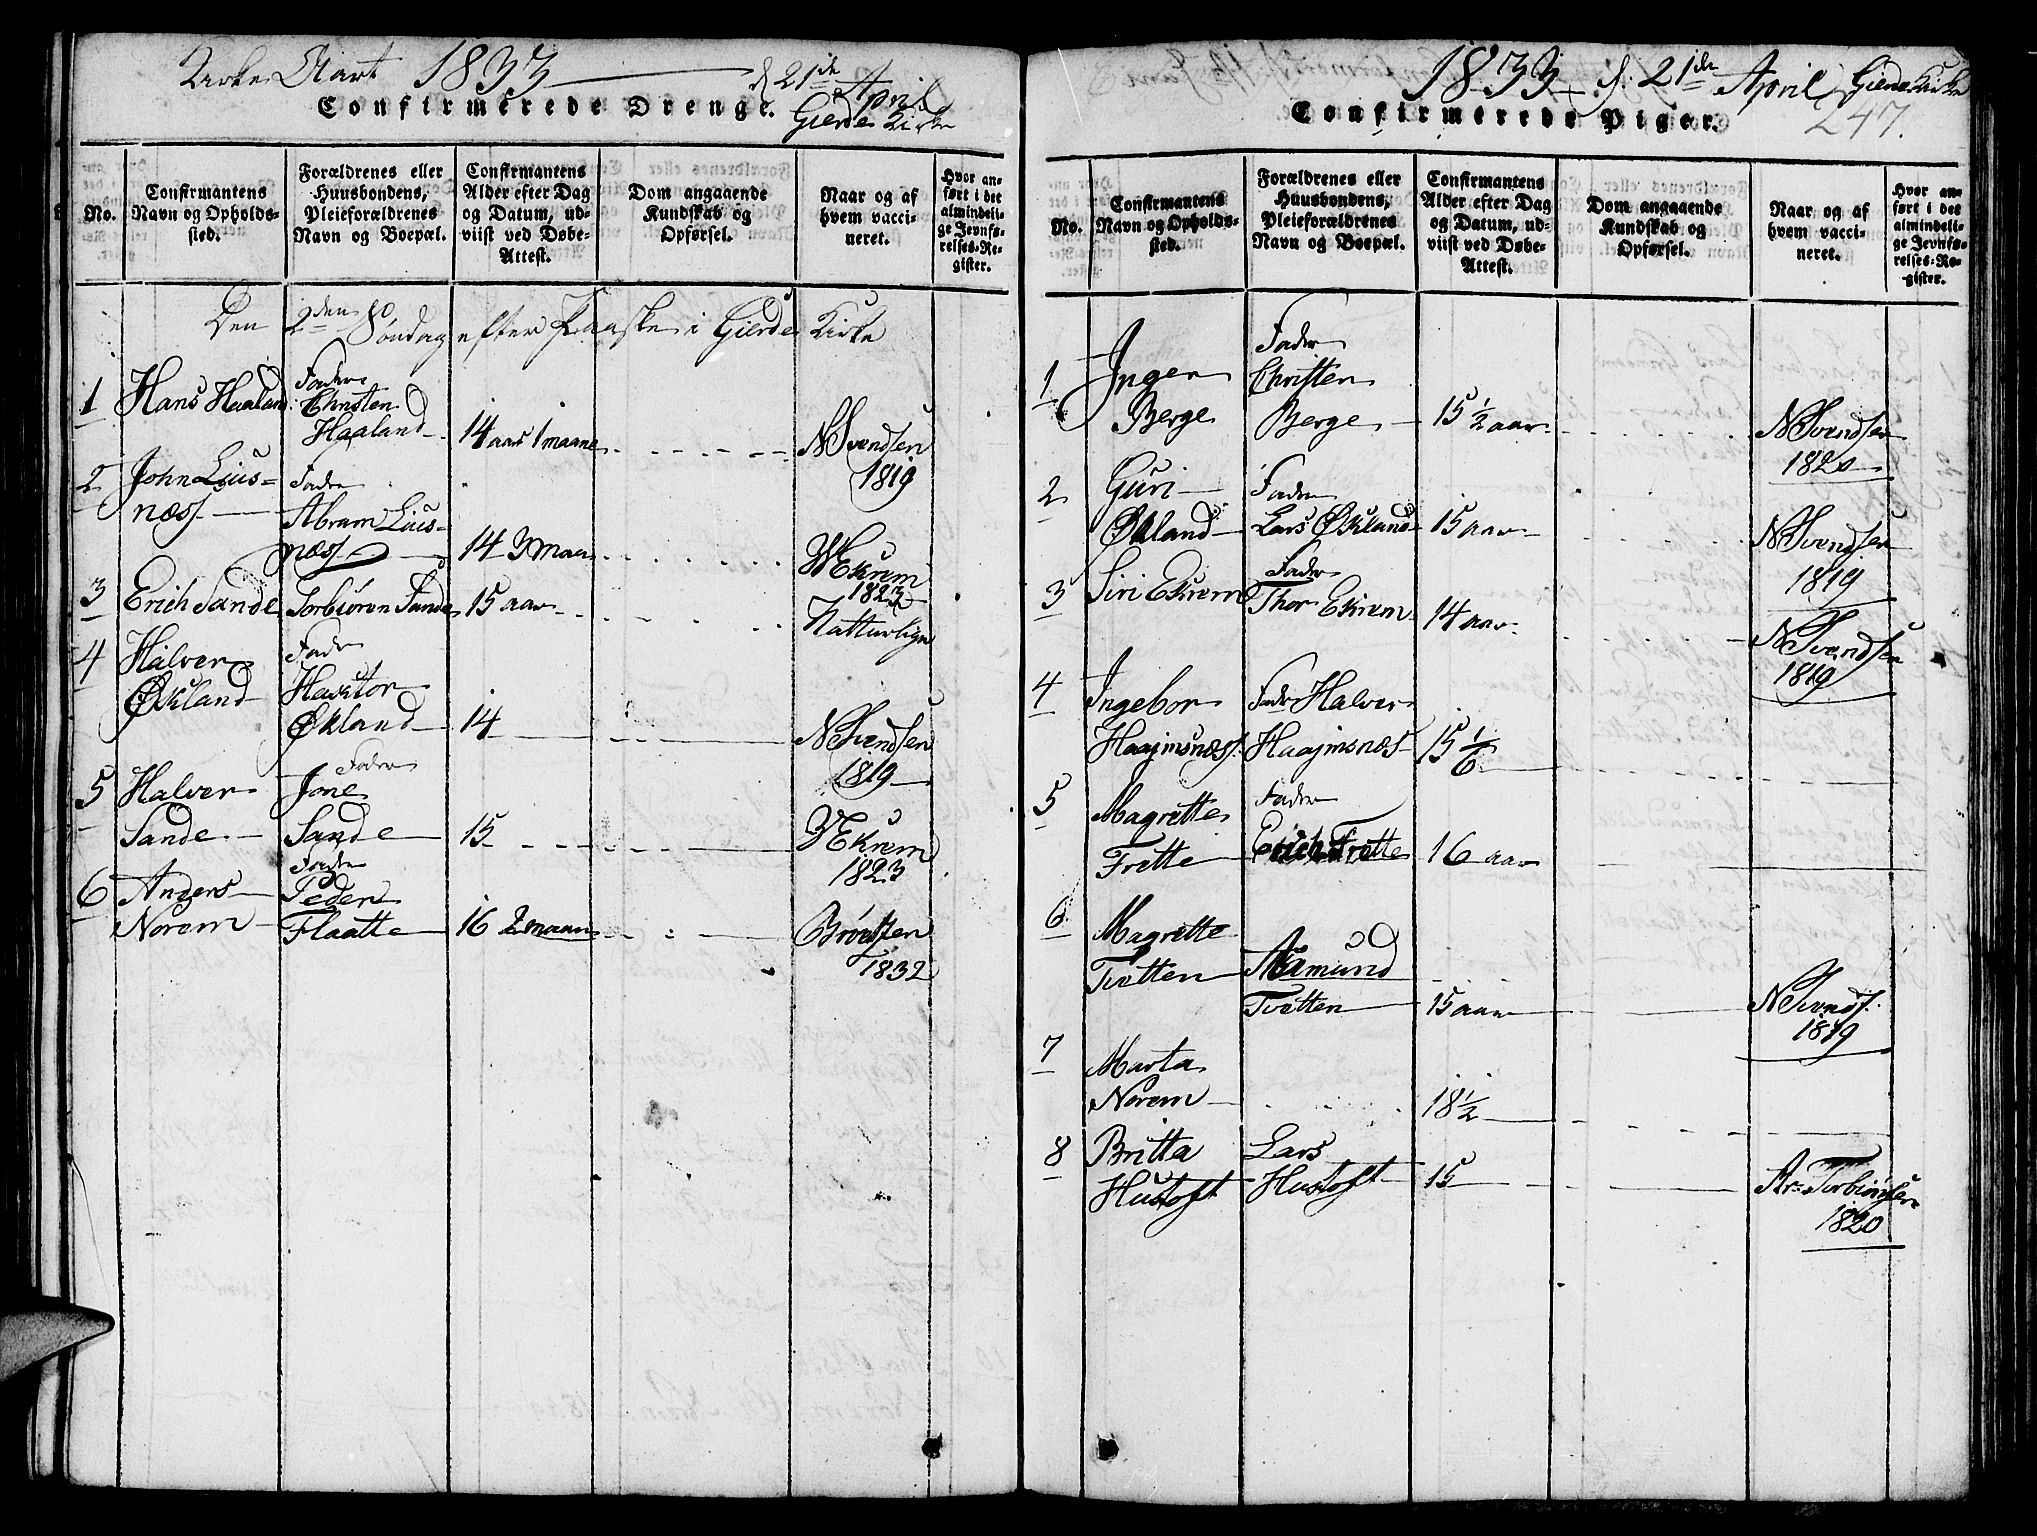 Kirke Aart 1833 d 21de April
Confirmerede Drenge. Gierde Kirke
No.
Confirmantens
Navn og Opholds-
sted.
Forældrenes eller
Huusbondens,
Pleieforældrenes
Navn og Boepæl.
Confirmantens
Alder efter Dag
og Datum, ud-
viist ved Døbe-
Attest.
Dom angaaende
Kundskab og
Opførsel.
Naar og af
hvem vacci-
neret.
Hvor an-
ført i det
almindeli-
ge Jevnfø-
relses-Re-
gister.
Den 2den Søndag efter Paaske i Gierde Kirke
1 Hans Haaland Fader
Christen
Haaland 14 aar 1 maane NSvendsen
1819
2 John Lius-
næs Fader
Abram Lius-
næs 14 3 maan Ekrem
1823
3 Erich Sande Torbiören Sande 15 aar Natturlige
4 Halver
Økland Fader
Havtor
Økland 14 NSvendsen
1819
5 Halver
Sande Fader
Jone
Sande 15 Ekrem
1823
6 Anders
Norem Fader
Peder
Flaatte 16 2 maan
1832
1833 d: 21de April Gierde Kirke
Confirmerede Piger. 247.
No.
Confirmantens
Navn og Opholds-
sted.
Forældrenes eller
Huusbondens,
Pleieforældrenes
Navn og Boepæl.
Confirmantens
Alder efter Dag
og Datum, ud-
viist ved Døbe-
Attest.
Dom angaaende
Kundskab og
Opførsel.
Naar og af
hvem vacci-
neret.
Hvor an-
ført i det
almindeli-
ge Jevnfø-
relses-Re-
gister.
1 Inger
Berge Fader
Christen
Berge 15 1/2 aar NSvendsen
1820
2 Guri
Økland Fader
Lars Økland 15 aar NSvendsen
1819
3 Siri Ekrem Fader
Thor Ekrem 14 aar NSvendsen
1819
4 Ingebor
Haajmsnæs Fader Halver
Haajmsnæs 15 1/6
5 Magrette
Frette Fader
Erich Frette 16 aar
6 Magrette
Tvetten Aamund
Tvetten 15 aar NSvends.
1819
7 Marta
Norem 18 1/2
8 Britta
Hustoft Lars
Hustoft 15 Ar: Torbiönsen
1820